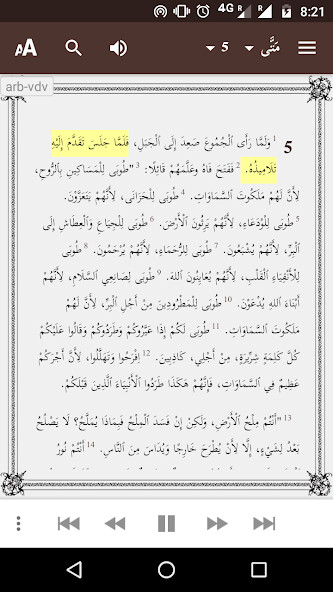 4G R 8:21
AA 5 مَتَّى
arb-vdv
5 1 وَلَمَّا رَأَى ٱلْجُمُوعَ صَعِدَ إِلَى ٱلْجَبَلِ، فَلَمَّا جَلَسَ تَقَدَّمَ إِلَيْهِ
تَلَامِيذُهُ. 2 فَفَتَحَ فَاهُ وعَلَّمَهُمْ قَائِلًا: 3 "طُوبَى لِلْمَسَاكِينِ بِٱلرُّوحِ،
لِأَنَّ لَهُمْ مَلَكُوتَ ٱلسَّمَاوَاتِ. 4 طُوبَى لِلْحَزَانَى، لِأَنَّهُمْ يَتَعَزَّوْنَ.
5 طُوبَى لِلْوُدَعَاءِ، لِأَنَّهُمْ يَرِثُونَ ٱلْأَرْضَ. 6 طُوبَى لِلْجِيَاعِ وَٱلْعِطَاشِ إِلَى
ٱلْبِرِّ، لِأَنَّهُمْ يُشْبَعُونَ. 7 طُوبَى لِلرُّحَمَاءِ، لِأَنَّهُمْ يُرْحَمُونَ. 8 طُوبَى
لِلْأَنْقِيَاءِ ٱلْقَلْبِ، لِأَنَّهُمْ يُعَايِنُونَ ٱللهَ. 9 طُوبَى لِصَانِعِي ٱلسَّلَامِ، لِأَنَّهُمْ
أَبْنَاءَ ٱللهِ يُدْعَوْنَ. 10 طُوبَى لِلْمَطْرُودِينَ مِنْ أَجْلِ ٱلْبِرِّ، لِأَنَّ لَهُمْ
مَلَكُوتَ ٱلسَّمَاوَاتِ. 11 طُوبَى لَكُمْ إِذَا عَيَّرُوكُمْ وَطَرَدُوكُمْ وَقَالُوا عَلَيْكُمْ
كُلَّ كَلِمَةٍ شِرِّيرَةٍ، مِنْ أَجْلِي، كَاذِبِينَ. 12 اِفْرَحُوا وَتَهَلَّلُوا، لِأَنَّ أَجْرَكُمْ
عَظِيمٌ فِي ٱلسَّمَاوَاتِ، فَإِنَّهُمْ هَكَذَا طَرَدُوا ٱلْأَنْبِيَاءَ ٱلَّذِينَ قَبْلَكُمْ.
13 "أَنْتُمْ مِلْحُ ٱلْأَرْضِ، وَلَكِنْ إِنْ فَسَدَ ٱلْمِلْحُ فَبِمَاذَا يُمَلَّحُ؟ لَا يَصْلُحُ
بَعْدُ لِشَيْءٍ، إِلَّا لِأَنْ يُطْرَحَ خَارِجًا وَيُدَاسَ مِنَ ٱلنَّاسِ. 14 أَنْتُمْ نُورُ